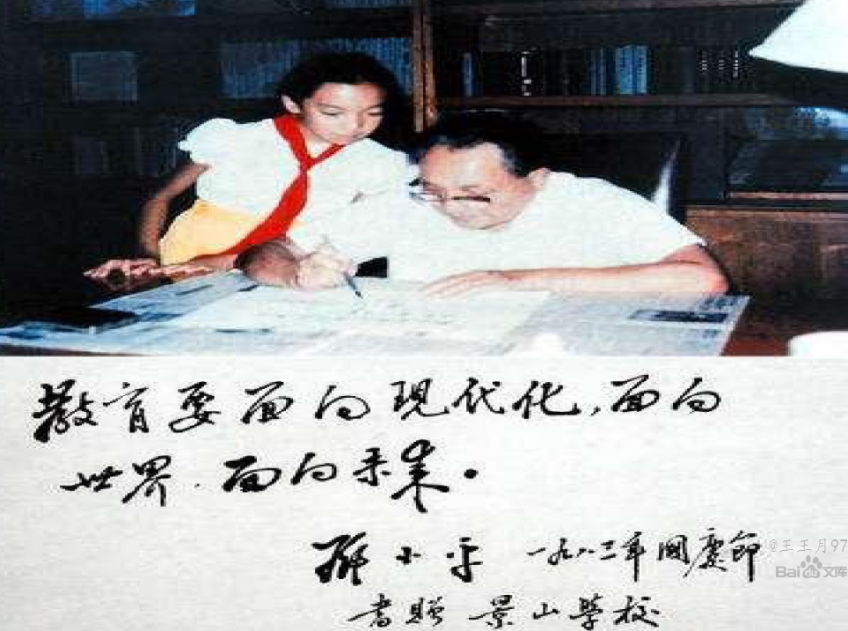 教育要面向现代化,面向
世界.面向未来。
邓小平 一九八三年國慶節
書贈 景山學校
@王王月97
Bai度文库